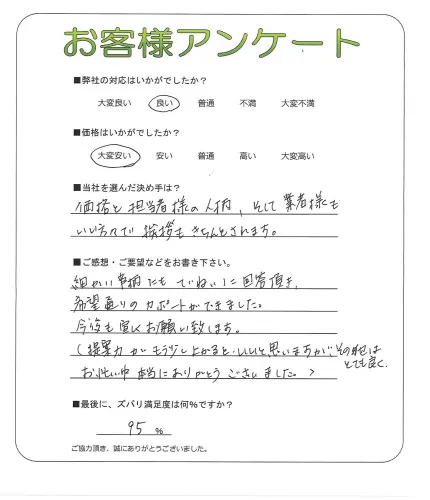 お客様アンケート
■弊社の対応はいかがでしたか？
大変良い 良い 普通 不満 大変不満
■価格はいかがでしたか？
大変安い 安い 普通 高い 大変高い
■当社を選んだ決め手は？
価格と担当者様の人柄、そして業者様も
いい方々で挨拶もきちんとされます。
■ご感想・ご要望などをお書き下さい。
細かい事柄にもていねいに回答頂き、
希望通りのカーポートができました。
今後も宜しくお願い致します。
(提案力がもう少し上がるといいと思いますが、その他は
とても良く、
お忙い中本当にありがとうございました。)
■最後に、ズバリ満足度は何％ですか？
95 %
ご協力頂き、誠にありがとうございました。